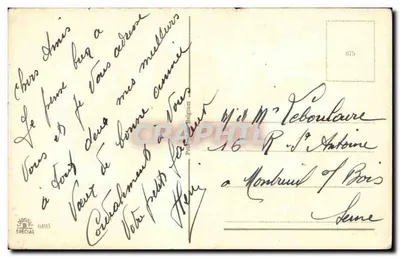 Chers Amis
Je pense bien a
Vous et je Vous adresse
à tous deux mes meilleurs
Vœux de bonne année
Cordialement à Vous
Votre petit
Henri
CARTH
075
M et Mme Leboulaire
36 R St Antoine
a Montreuil s/ Bois
Seine
SPÉCIAL